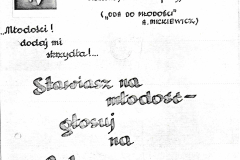 ("ODA DO MŁODOŚCI"
A. MICKIEWICZ)
„Młodości!
dodaj mi
skrzydła!...
Stawiasz na
młodość–
głosuj
na